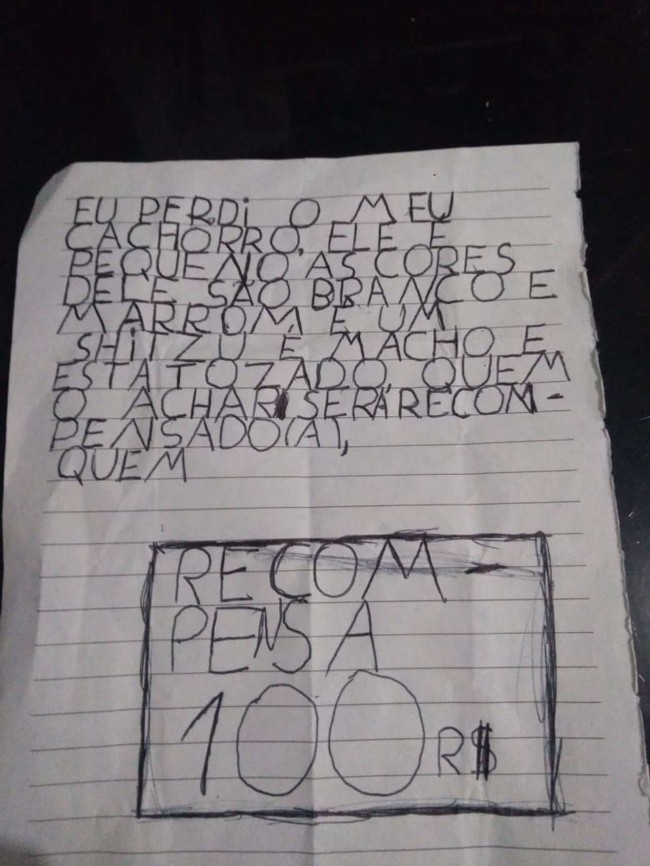 EU PERDi O MEU
CACHORRO, ELE É
PEQUENO, AS CORES
DELE SÃO BRANCO E
MARROM E UM
SHiTZU É MACHO E
ESTA TOZADO, QUEM
O ACHAR SERÁ RECOM-
PENSADO(A),
QUEM
RECOM-
PENSA
100 R$